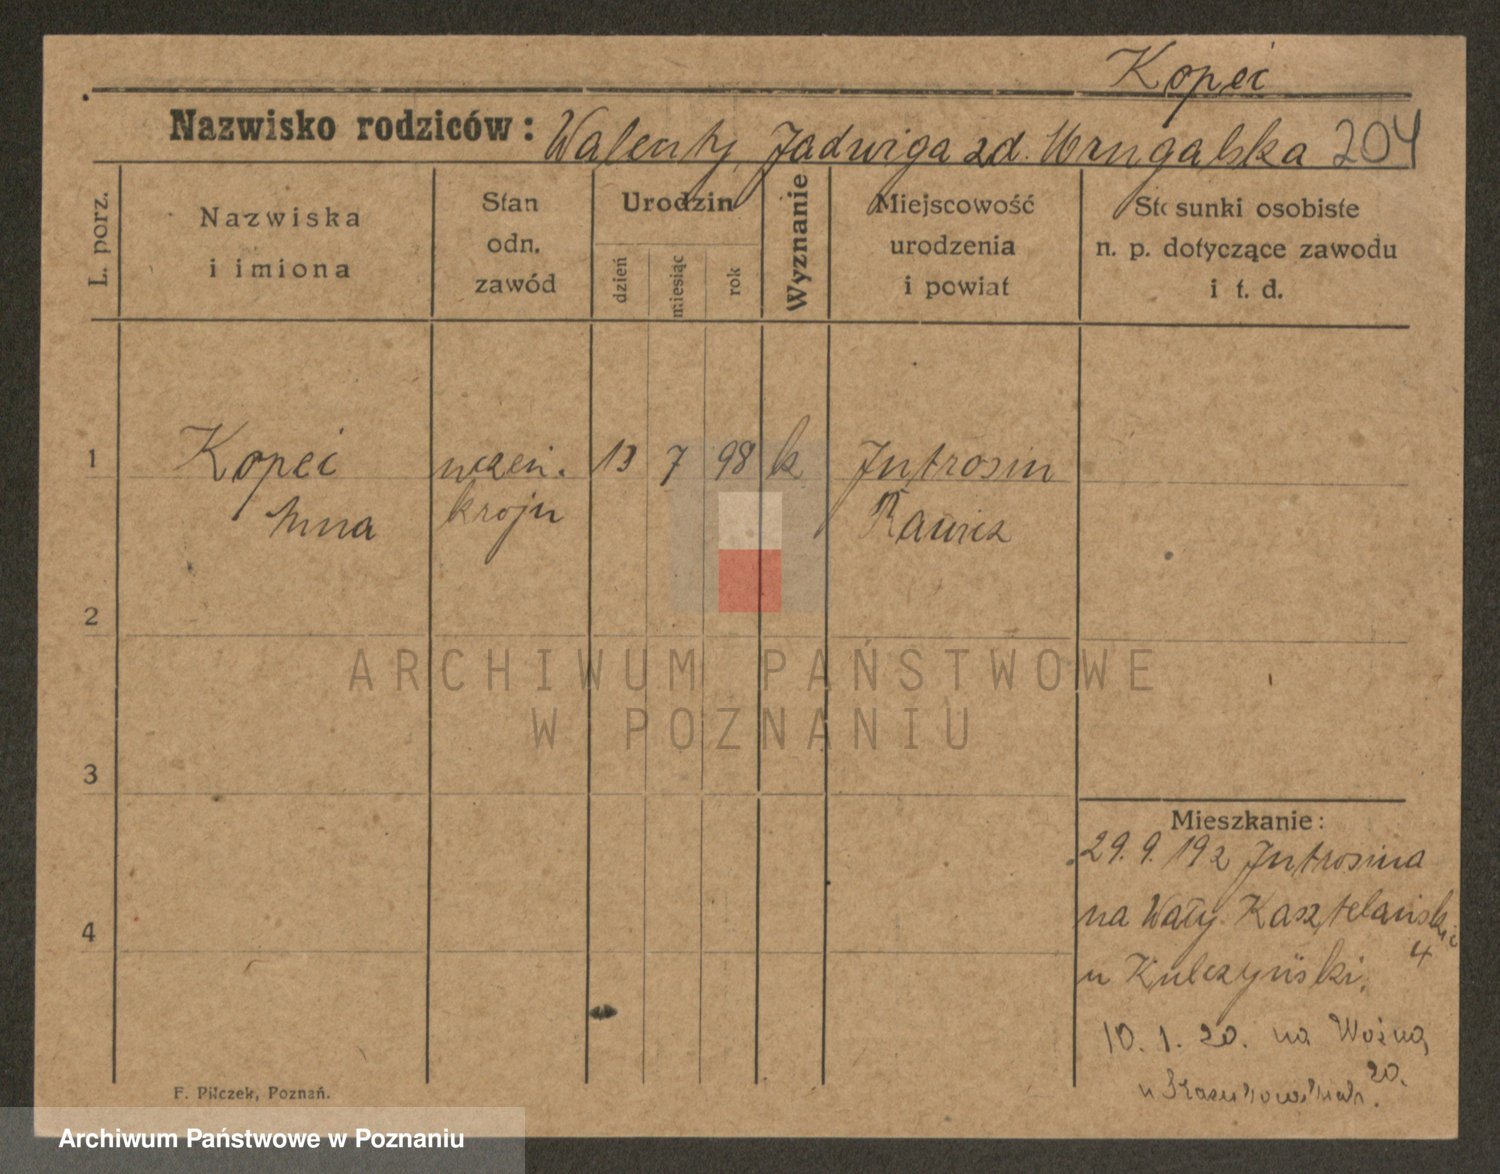 Kopeć
Nazwisko rodziców: Walenty, Jadwiga zd. 204
L. porz.
Nazwiska
i imiona
Stan
odn.
zawód
Urodzin
dzień
miesiąc
rok
Wyznanie
Miejscowość
urodzenia
i powiat
Stosunki osobiste
n. p. dotyczące zawodu
i t. d.
1
Kopeć
Anna
uczeń.
kroju
13 7 98 k
Jutrosin
Rawicz
2
3
4
Mieszkanie:
29. 9. 192 Jutrosina
na Wały Kasztelański
4
u Kulczyński.
10. 1. 20. na Woźną
20.
F. Pilczek, Poznań.
ARCHIWUM PAŃSTWOWE
W POZNANIU
Archiwum Państwowe w Poznaniu